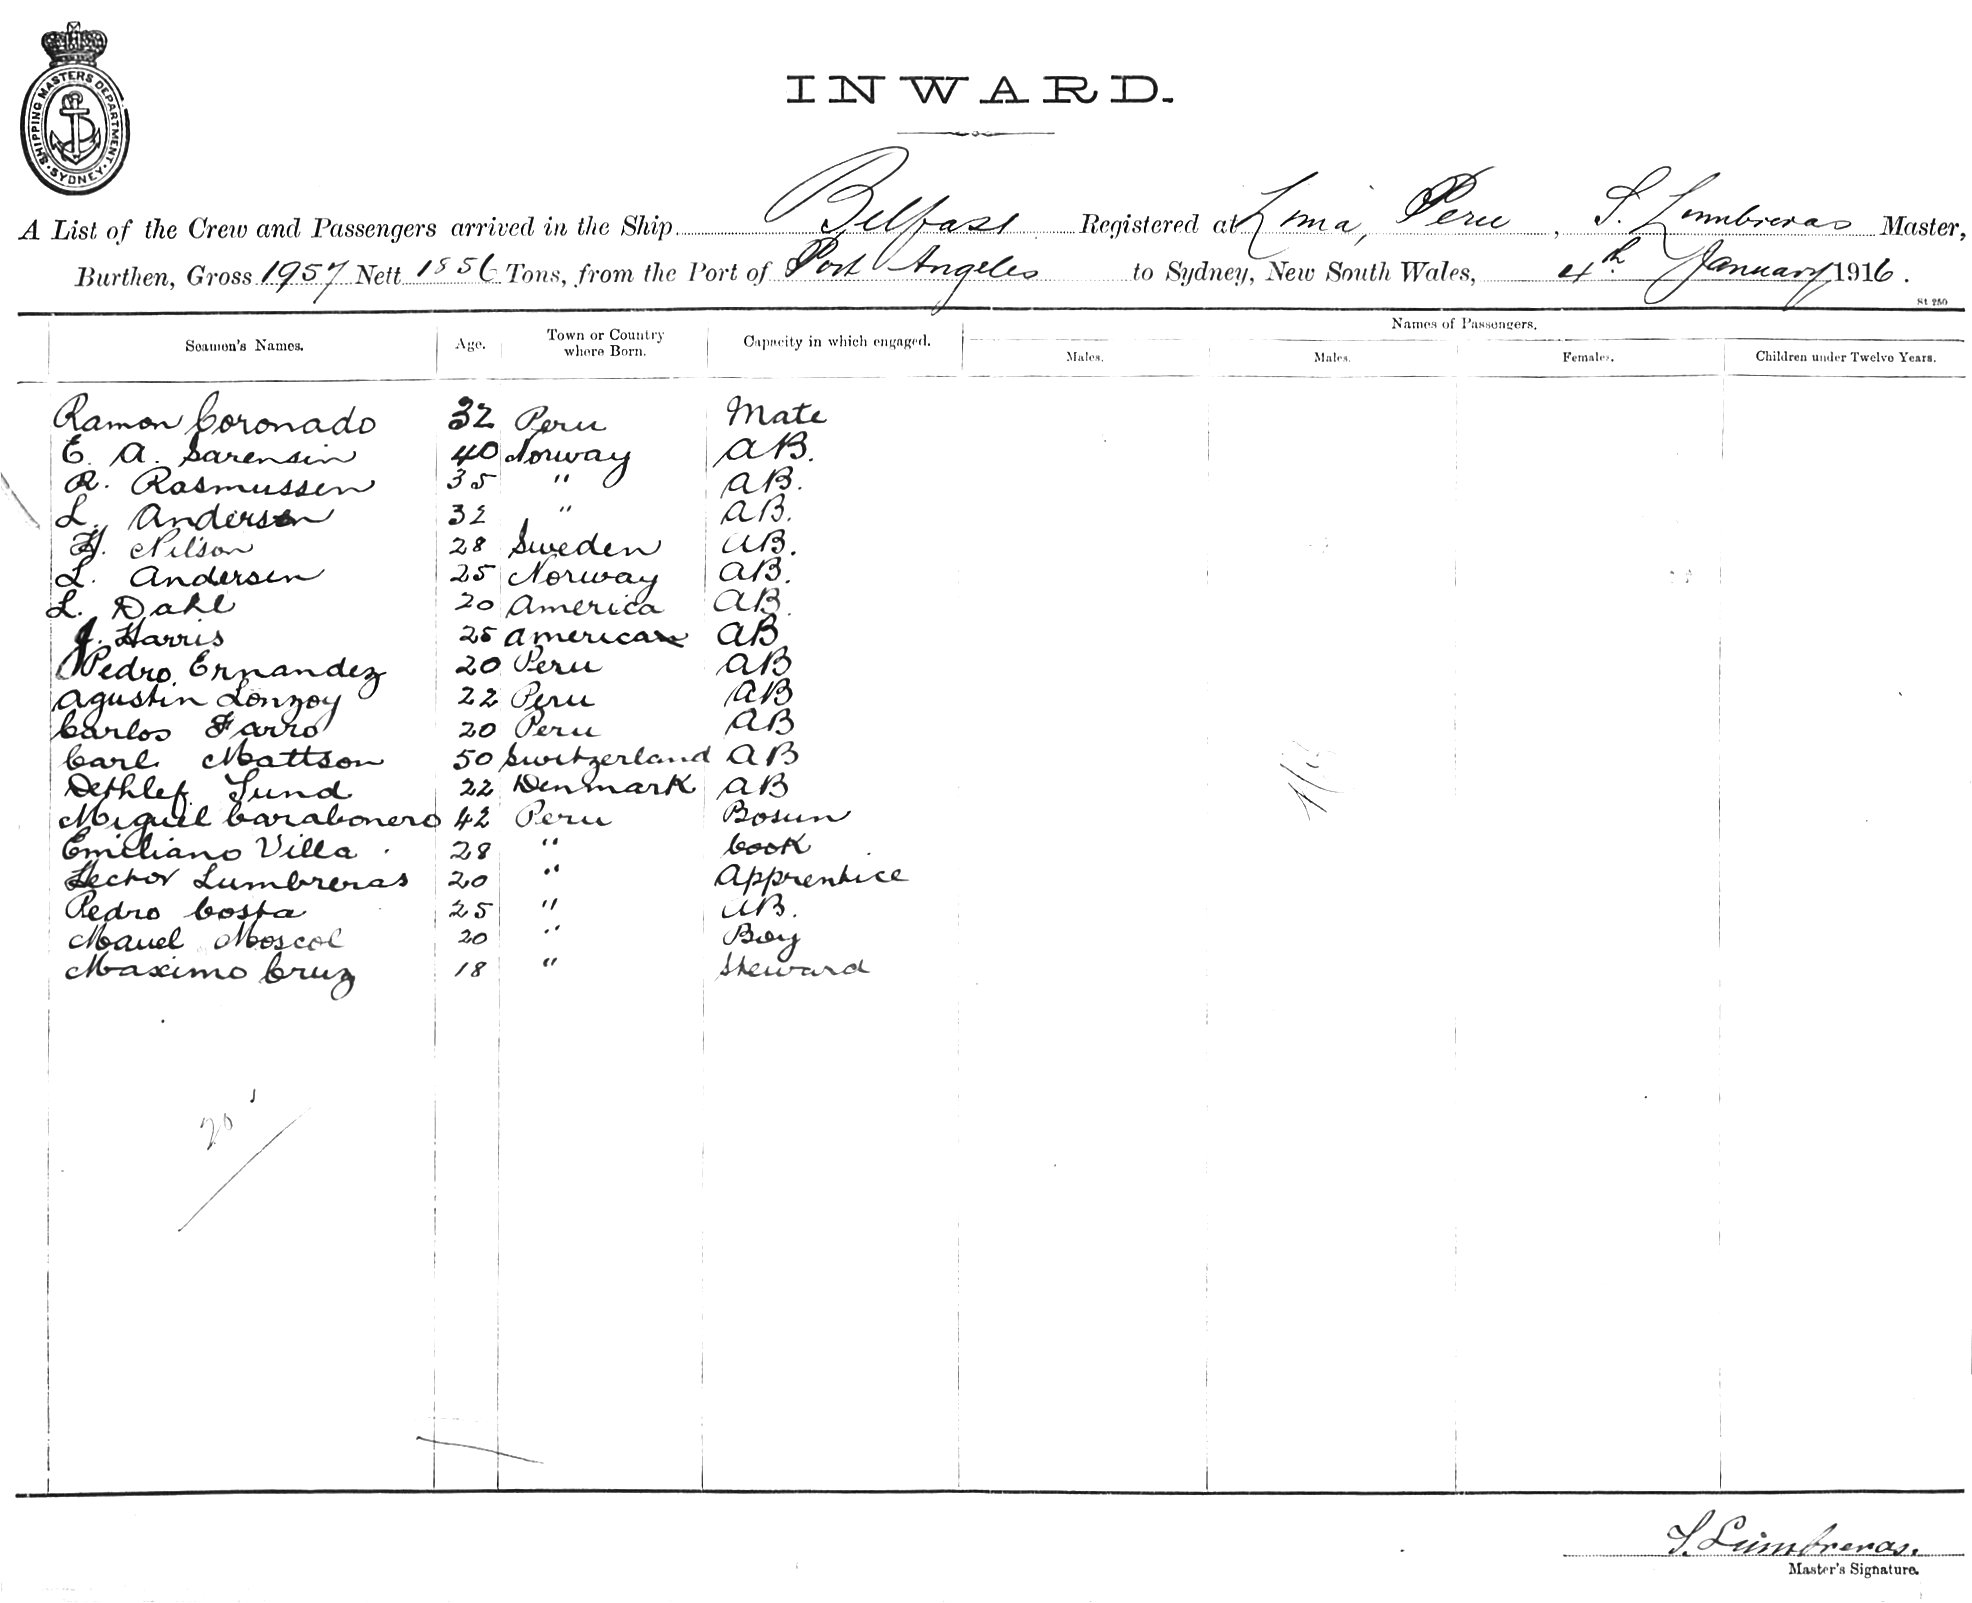 SHIPPING MASTERS DEPARTMENT. SYDNEY.
INWARD.
A List of the Crew and Passengers arrived in the Ship Belfast Registered at Lima, Peru, S. Lumbreras Master,
Burthen, Gross 1957 Nett 1856 Tons, from the Port of Port Angeles to Sydney, New South Wales, 4th January 1916.
St 250
Seamen's Names. Age. Town or Country where Born. Capacity in which engaged. Names of Passengers.
Males. Males. Females. Children under Twelve Years.
Ramon Coronado 32 Peru Mate
E. A. Sarensin 40 Norway AB.
R. Rasmussen 35 " AB.
L. Andersen 32 " AB.
H. Nilson 28 Sweden AB.
L. Andersen 25 Norway AB.
L. Dahl 20 America AB.
J. Harris 25 American AB
Pedro Ernandez 20 Peru AB
Agustin Lonzoy 22 Peru AB
Carlos Farro 20 Peru AB
Carl Mattson 50 Switzerland AB
Dethlef Lund 22 Denmark AB
Miguel Carabonero 42 Peru Bosun
Emiliano Villa 28 " Cook
Hector Lumbreras 20 " Apprentice
Pedro Costa 25 " AB.
Mauel Moscol 20 " Boy
Maximo Cruz 18 " Steward
20
S. Lumbreras.
Master's Signature.